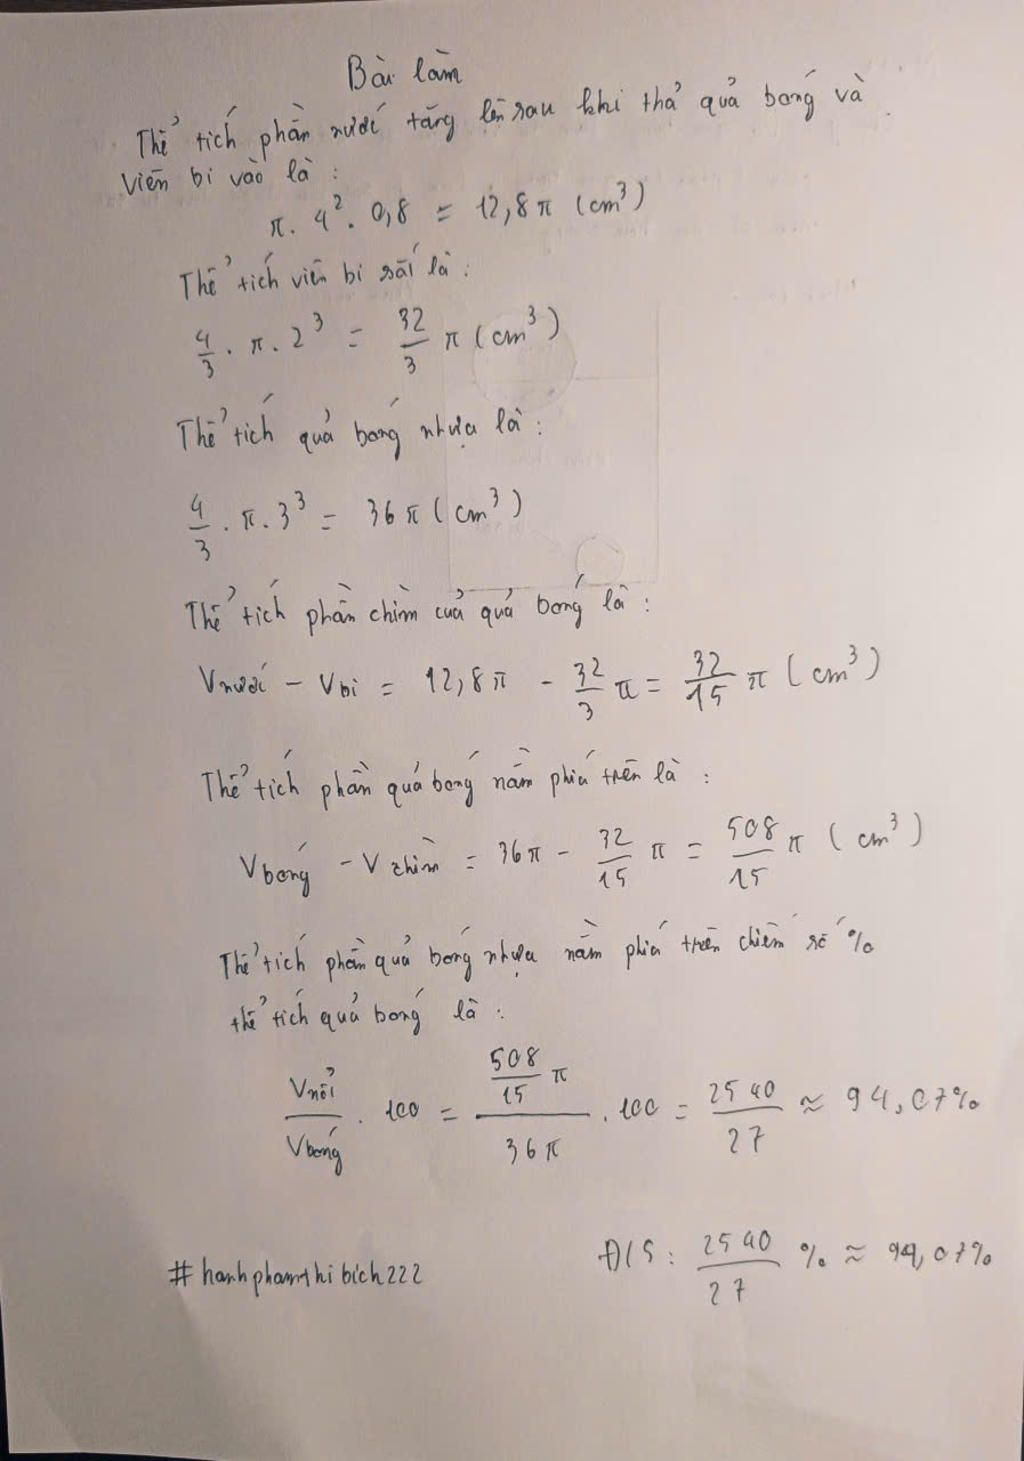 Bài làm
Thể tích phần nước tăng lên sau khi thả quả bóng và
viên bi vào là :
π. 4². 0,8 = 12,8π (cm³)
Thể tích viên bi sắt là :
4/3 . π . 2³ = 32/3 π (cm³)
Thể tích quả bóng nhựa là :
4/3 . π . 3³ = 36π (cm³)
Thể tích phần chìm của quả bóng là :
Vnước - Vbi = 12,8π - 32/3 π = 32/15 π (cm³)
Thể tích phần quả bóng nằm phía trên là :
Vbóng - Vchìm = 36π - 32/15 π = 508/15 π (cm³)
Thể tích phần quả bóng nhựa nằm phía trên chiếm số %
thể tích quả bóng là :
Vnổi/Vbóng . 100 = (508/15 π)/(36π) . 100 = 2540/27 ≈ 94,07%
Đ/S : 2540/27 % ≈ 94,07%
#hanhphamthibich222